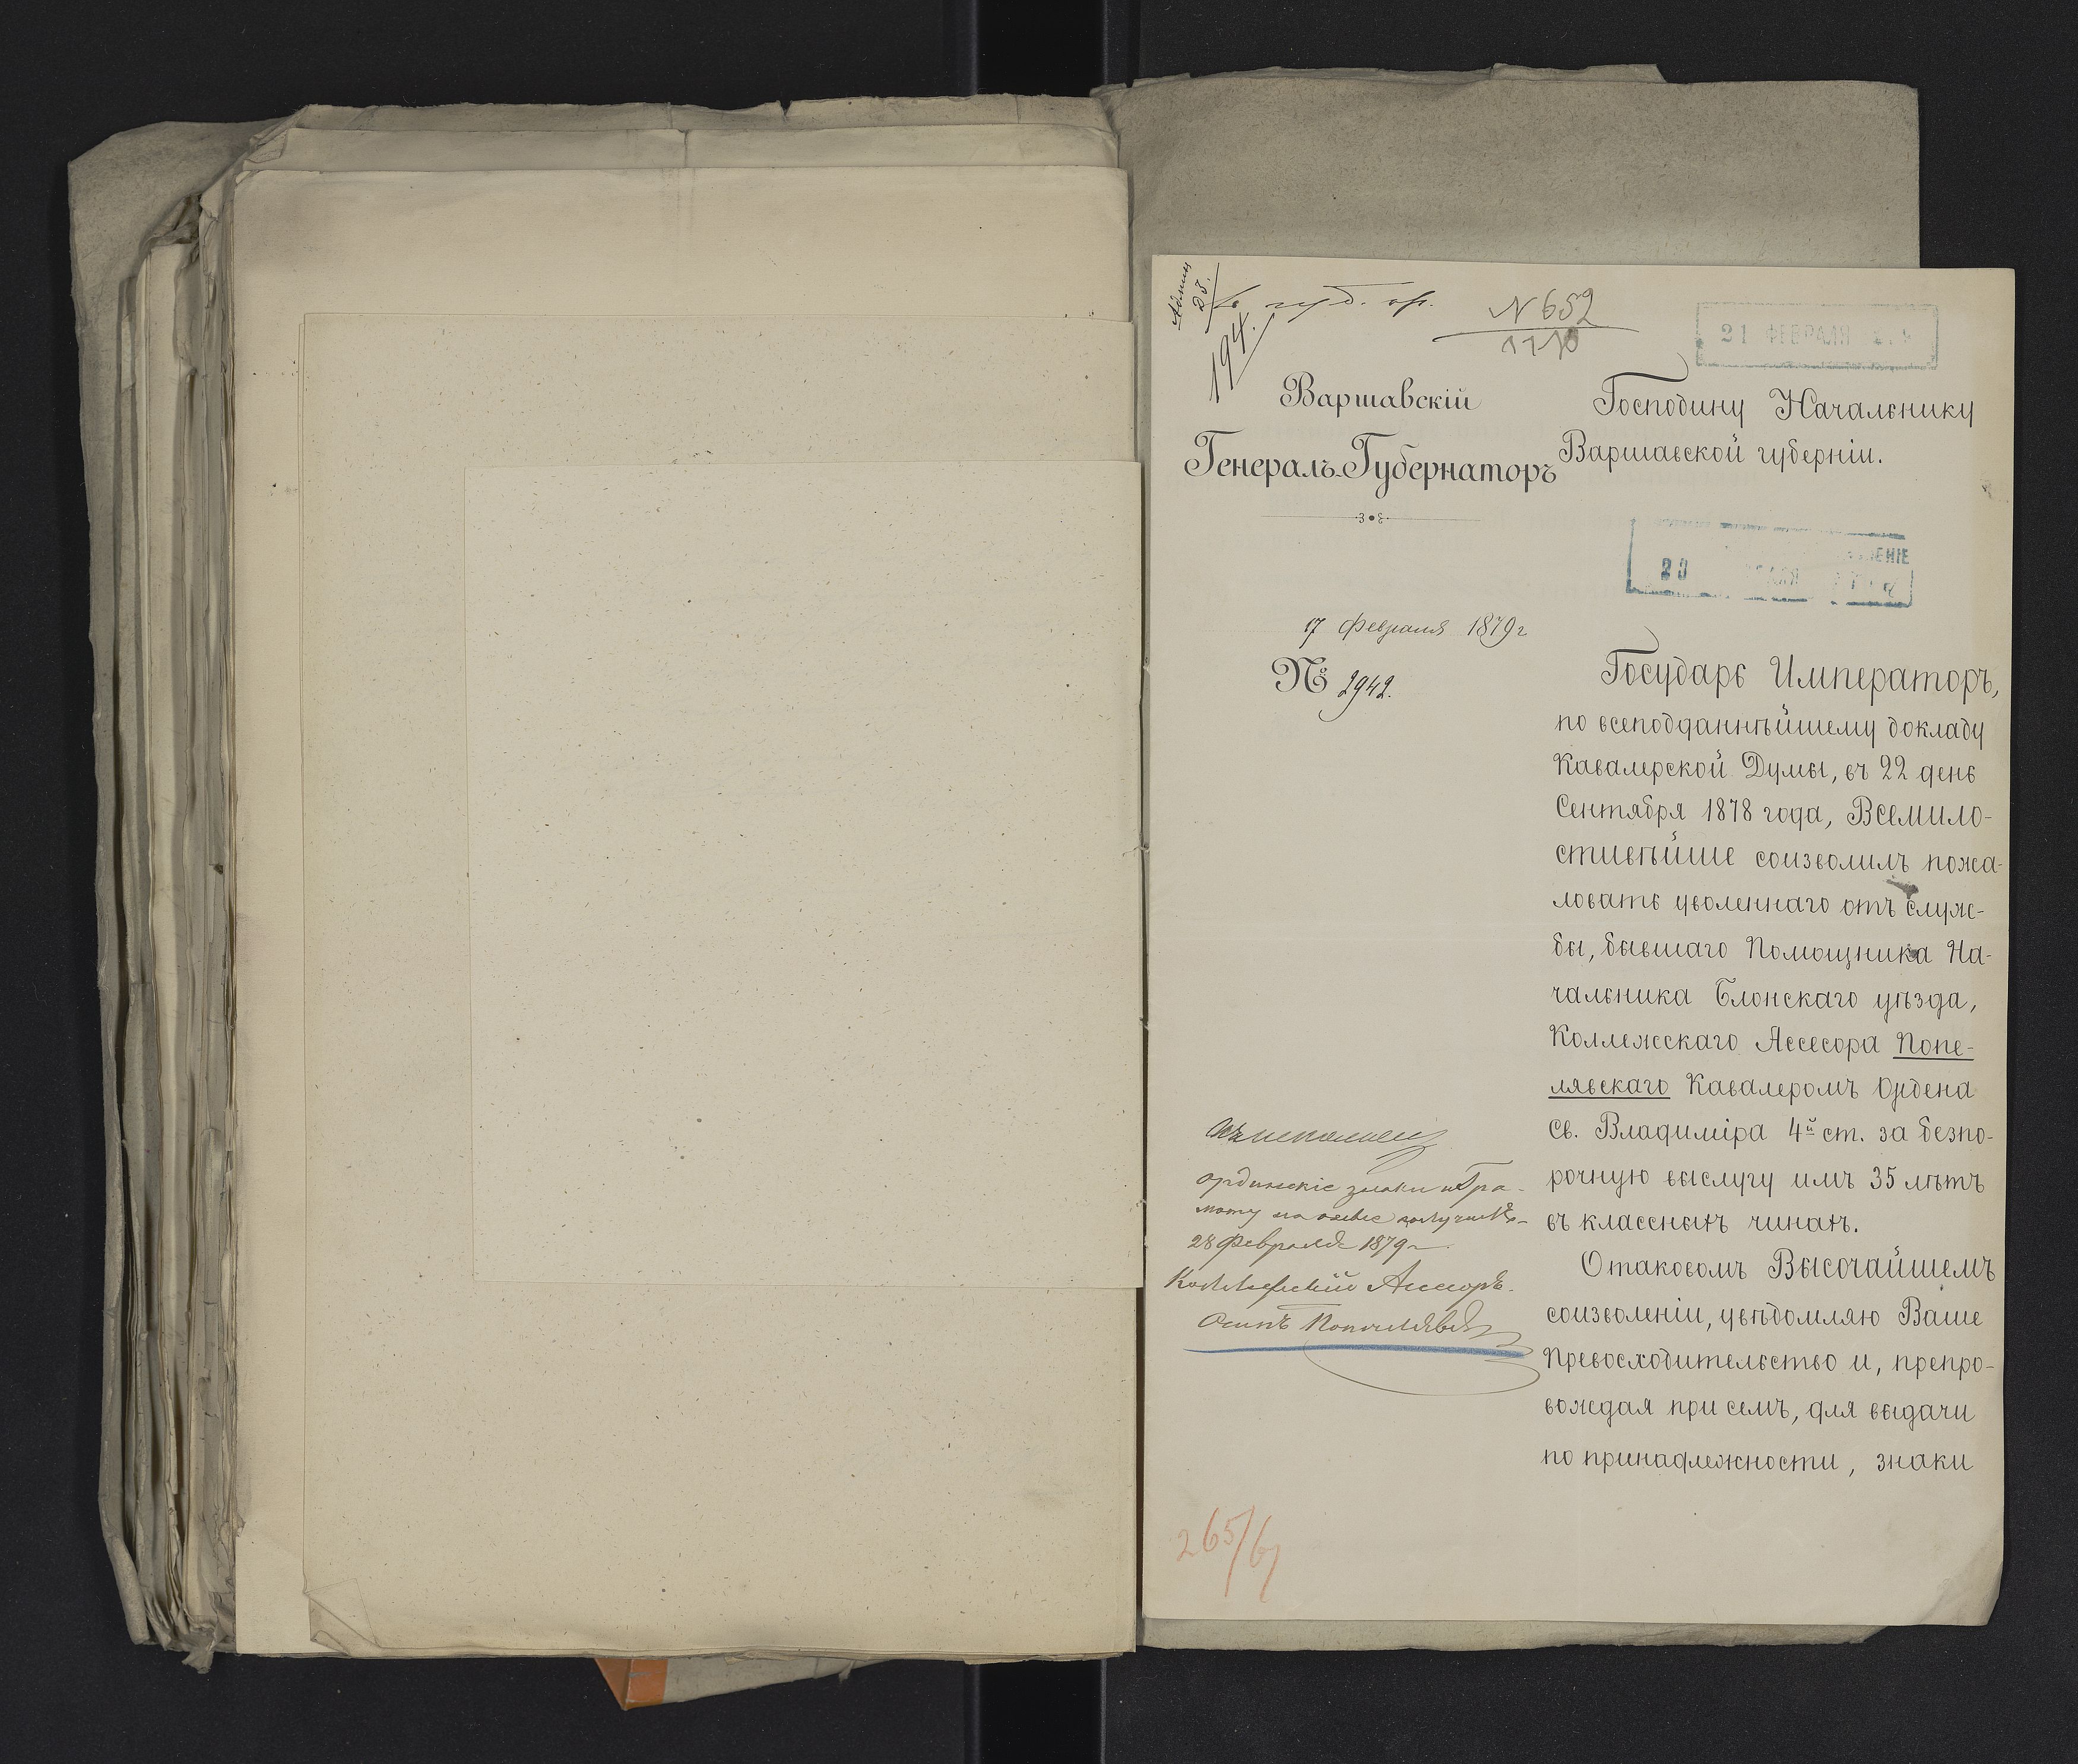 Админ
194.
N 652
21 ФЕВРАЛЯ
Варшавскій
Генералъ-Губернаторъ
17 Февраля 1879 г
№ 2942.
Господину Начальнику
Варшавской губерніи.
20
Государь Императоръ,
по всеподданнѣйшему докладу
Кавалерской Думы, въ 22 день
Сентября 1878 года, Всемило-
стивѣйше соизволилъ пожа-
ловать уволеннаго отъ служ-
бы, бывшаго Помощника На-
чальника Блонскаго уѣзда,
Коллежскаго Ассесора Попе-
лявскаго Кавалеромъ Ордена
Св. Владиміра 4й ст. за безпо-
рочную выслугу имъ 35 лѣтъ
въ классныхъ чинахъ.
О таковомъ Высочайшемъ
соизволеніи, увѣдомляю Ваше
Превосходительство и, препро-
вождая при семъ, для выдачи
по принадлежности, знаки
орденскіе знаки и Гра-
моту на оные получилъ
28 Февраля 1879 г.
Коллежскій Ассесоръ
Осипъ
265/67